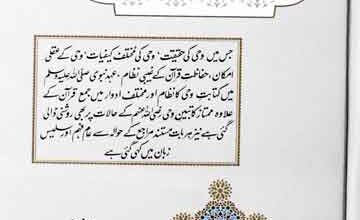 جس میں وحی کی حقیقت، وحی کی مختلف کیفیات، وحی کے عقلی
امکان، حفاظت قرآن کے غیبی نظام، عہد نبوی صلی اللہ علیہ وسلم
میں کتابت وحی کا نظام اور مختلف ادوار میں جمع قرآن کے
علاوہ ممتاز کاتبین وحی رضی اللہ عنہم کے حالات پر بھی روشنی ڈالی
گئی ہے نیز ہر بات مستند مراجع کے حوالہ سے عام فہم اور سلیس
زبان میں کہی گئی ہے